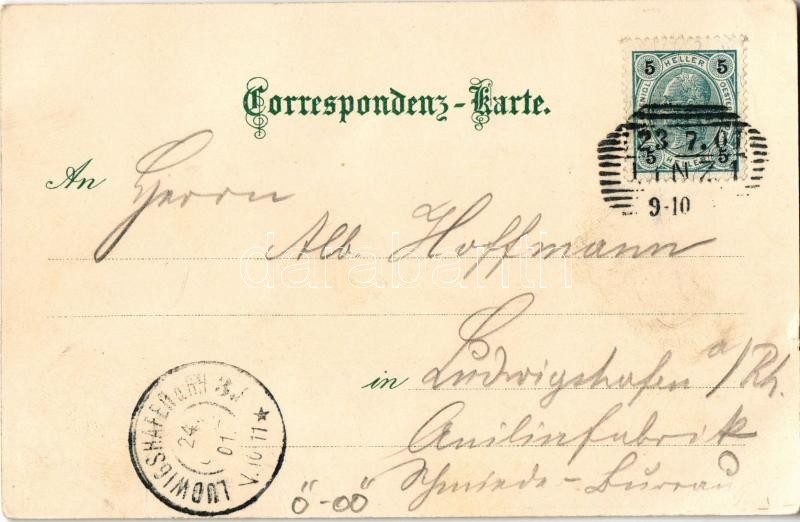 5 HELLER 5
Correspondenz-Karte.
23 7.0
5 HELLER 5
LINZ 1
9-10
An Herrn
Alb. Hoffmann
darabanth
in Ludwigshafen a/Rh.
Anilinfabrik
Schmiede-Bureau
LUDWIGSHAFEN a. RH
24
01
V. 10-11
Ö-OÖ